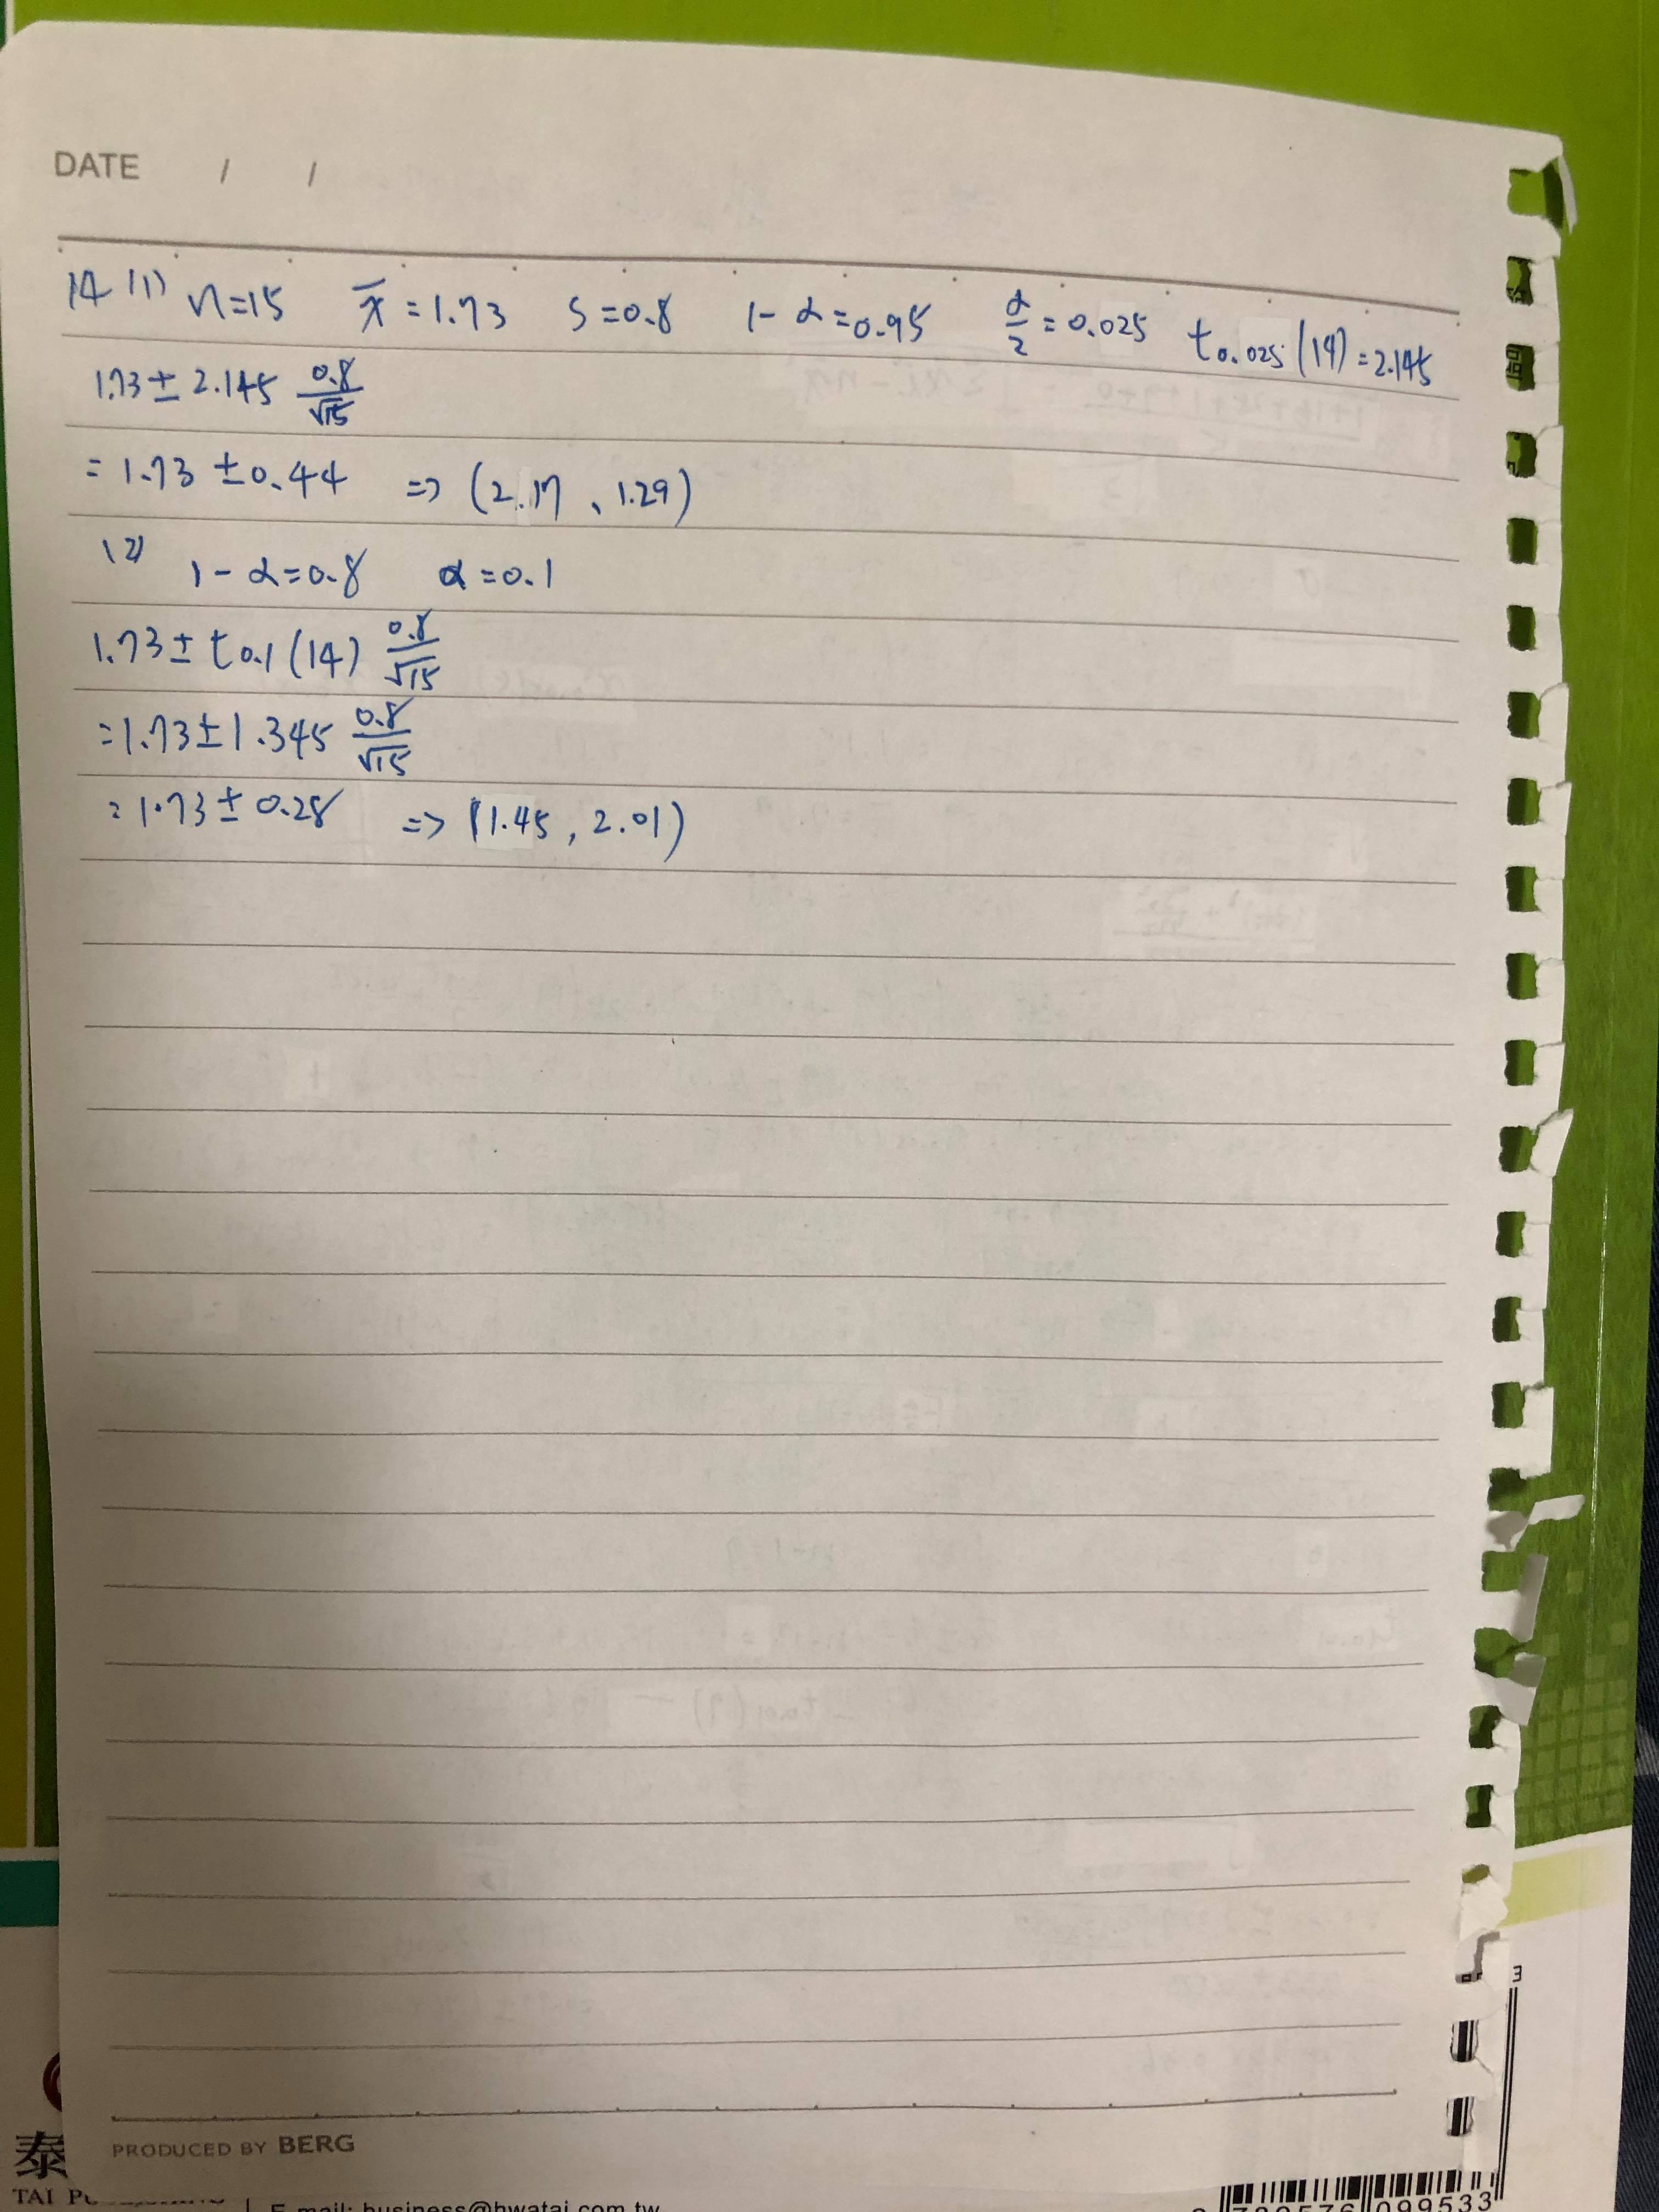 DATE / /
14 (1) n=15 x̄=1.73 s=0.8 1-α=0.95 α/2=0.025 t0.025(14)=2.145
1.73±2.145 0.8/√15
=1.73±0.44 => (2.17、1.29)
(2) 1-α=0.8 α=0.1
1.73±t0.1(14) 0.8/√15
=1.73±1.345 0.8/√15
=1.73±0.28 => (1.45, 2.01)
PRODUCED BY BERG
泰
TAI
E-mail: business@hwatai.com.tw
3